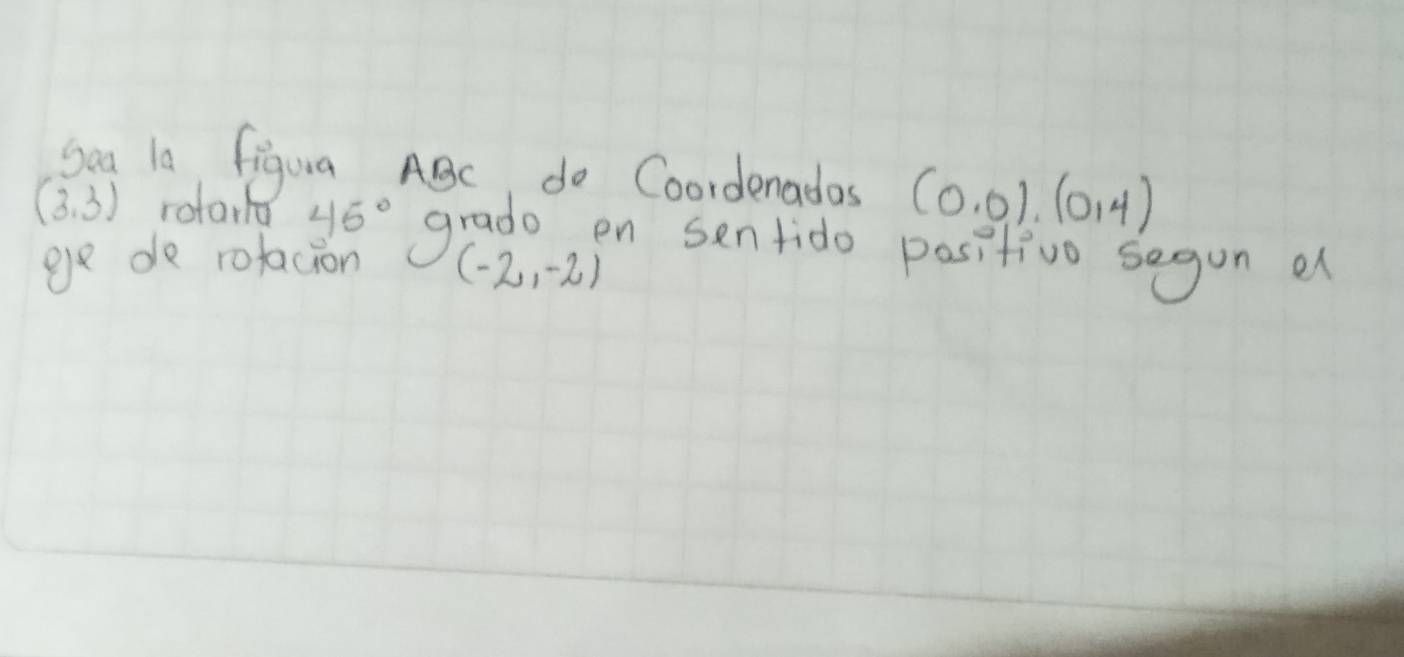 Sea la figura ABC, de Coordenadas (0.0). (0,4)
(3.3) rotarla 45° grado en sentido positivo segun el
eje de rotación (-2,-2)